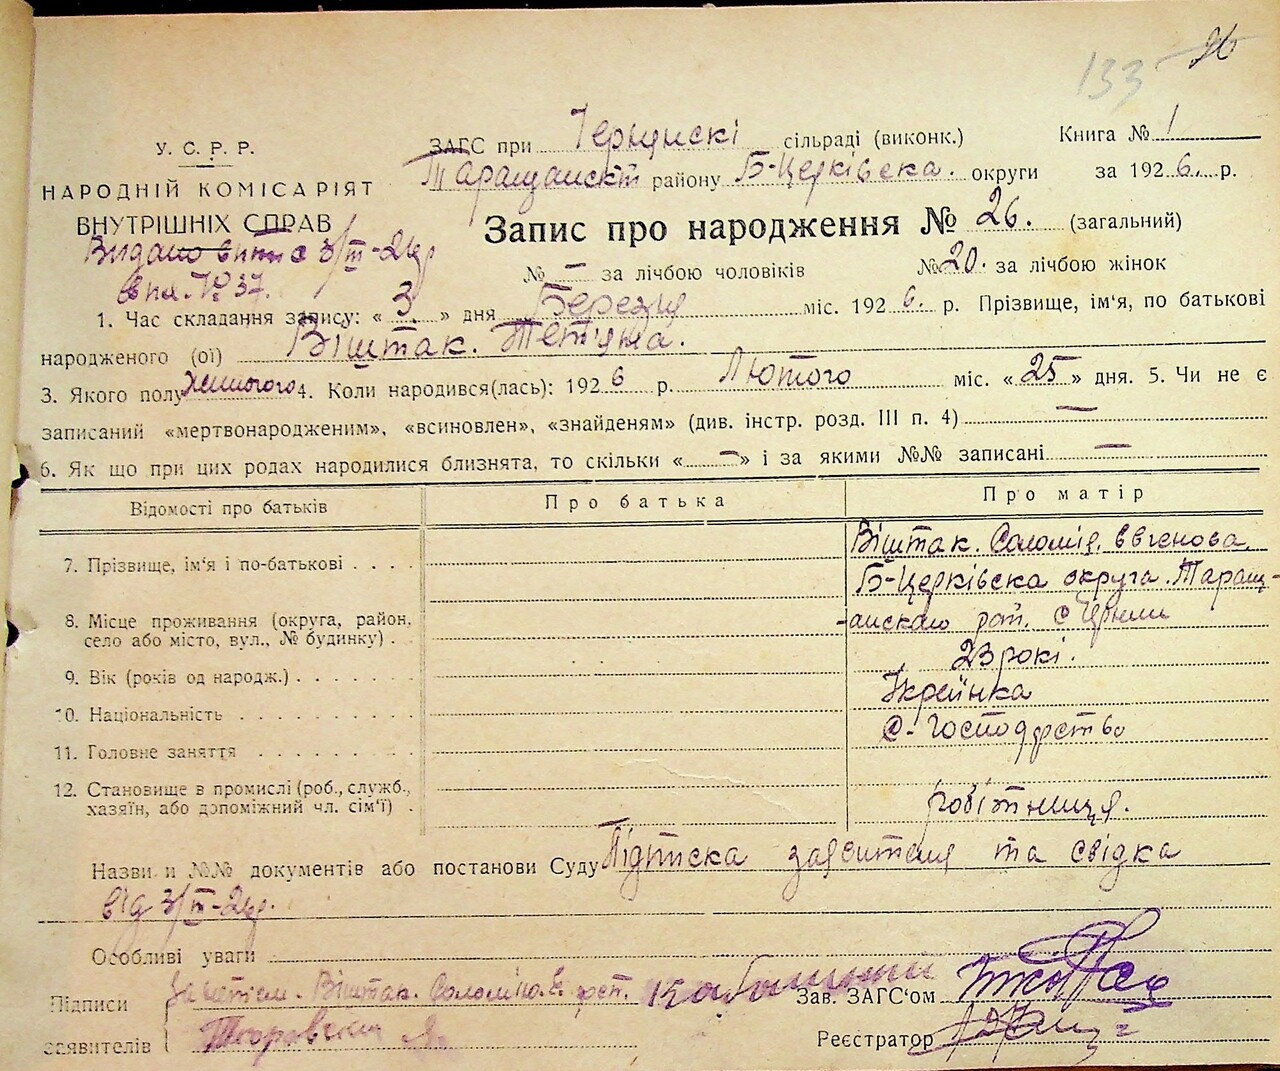 133 26
У. С. Р. Р.
НАРОДНІЙ КОМІСАРІЯТ
ВНУТРІШНІХ СПРАВ
Видано витис 3/III-26р
вип. № 37.
ЗАГС при сільраді (виконк.) Книга № 1
Таращанскт району Б-Церківска. округи за 1926. р.
Запис про народження № 26. (загальний)
№ – за лічбою чоловіків № 20. за лічбою жінок
1. Час складання запису: « 3 » дня Березня міс. 1926. р. Прізвище, ім'я, по батькові
народженого (ої) Віштак. Тетяна.
3. Якого полу жиночого 4. Коли народився(лась): 1926 р. Лютого міс. « 25 » дня. 5. Чи не є
записаний «мертвонародженим», «всиновлен», «знайденям» (див. інстр. розд. III п. 4) —
6. Як що при цих родах народилися близнята, то скільки « – » і за якими №№ записані —
Відомості про батьків Про батька Про матір
7. Прізвище, ім'я і по-батькові . . . . Віштак. Соломія. Евгенова
8. Місце проживання (округа, район, село або місто, вул., № будинку) . Б-Церківска округа. Таращ-
-анскаго рот. с
9. Вік (років од народж.) . . . . . . . 23 рокі.
10. Національність . . . . . . . . . . Украінка
11. Головне заняття . . . . . . . . . с-господарство
12. Становище в промислі (роб., службк., хазяїн, або допоміжний чл. сім'ї) . робітниця.
Назви и №№ документів або постанови Суду Підписка заявителя та свідка
від 3/III-26р.
Особливі уваги
Підписи заявителів Віштак. Соломія. Зав. ЗАГС'ом
Реєстратор